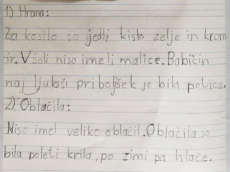 1) Hrana:
Za kosilo so jedli kislo zelje in krom
ir. V šoli niso imeli malice. Babičin
naj ljubši priboljšek je bila potica.
2) Oblačila:
Niso imel veliko oblačil. Oblačila so
bila poleti krila, po zimi pa hlače.